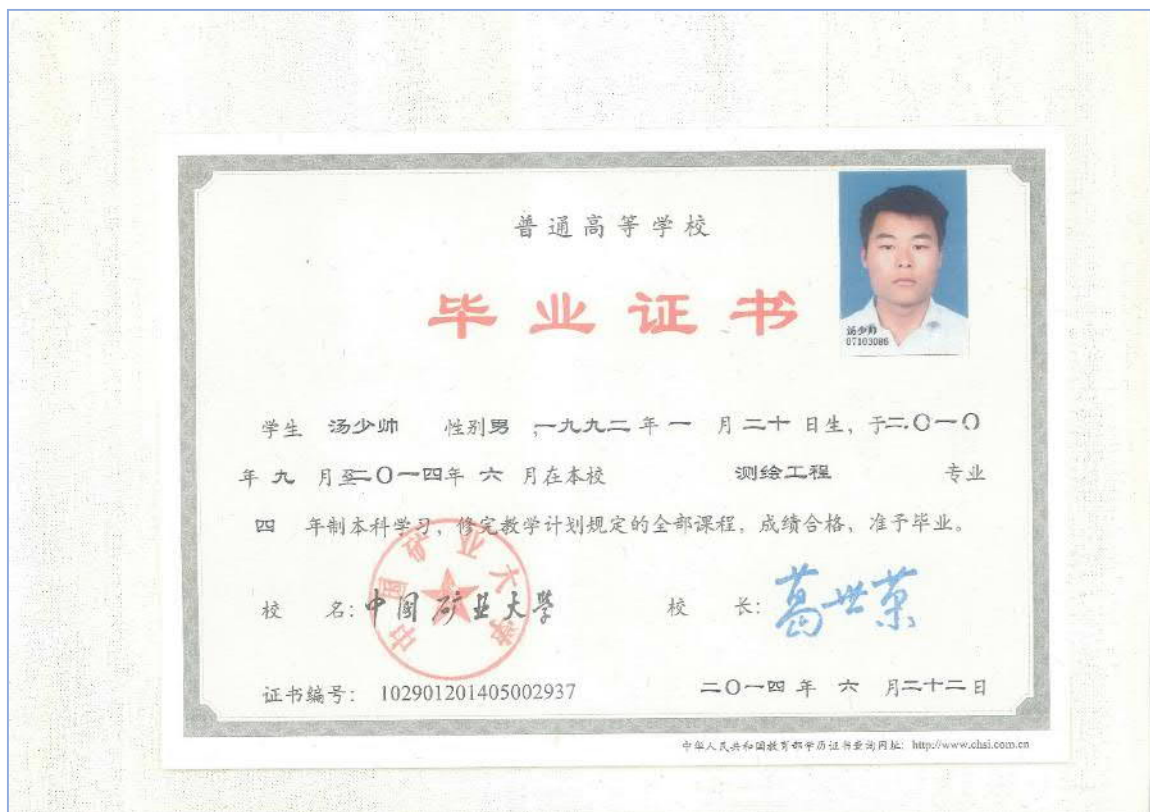 普通高等学校
毕业证书
汤少帅
07103086
学生 汤少帅 性别 男 ,一九九二年 一 月 二十 日生, 于二〇一〇
年 九 月至二〇一四年 六 月在本校 测绘工程 专业
四 年制本科学习, 修完教学计划规定的全部课程, 成绩合格, 准予毕业。
中国矿业大学
校 名: 中国矿业大学 校 长: 葛世荣
证书编号: 102901201405002937 二〇一四 年 六 月二十二日
中华人民共和国教育部学历证书查询网址: http://www.chsi.com.cn